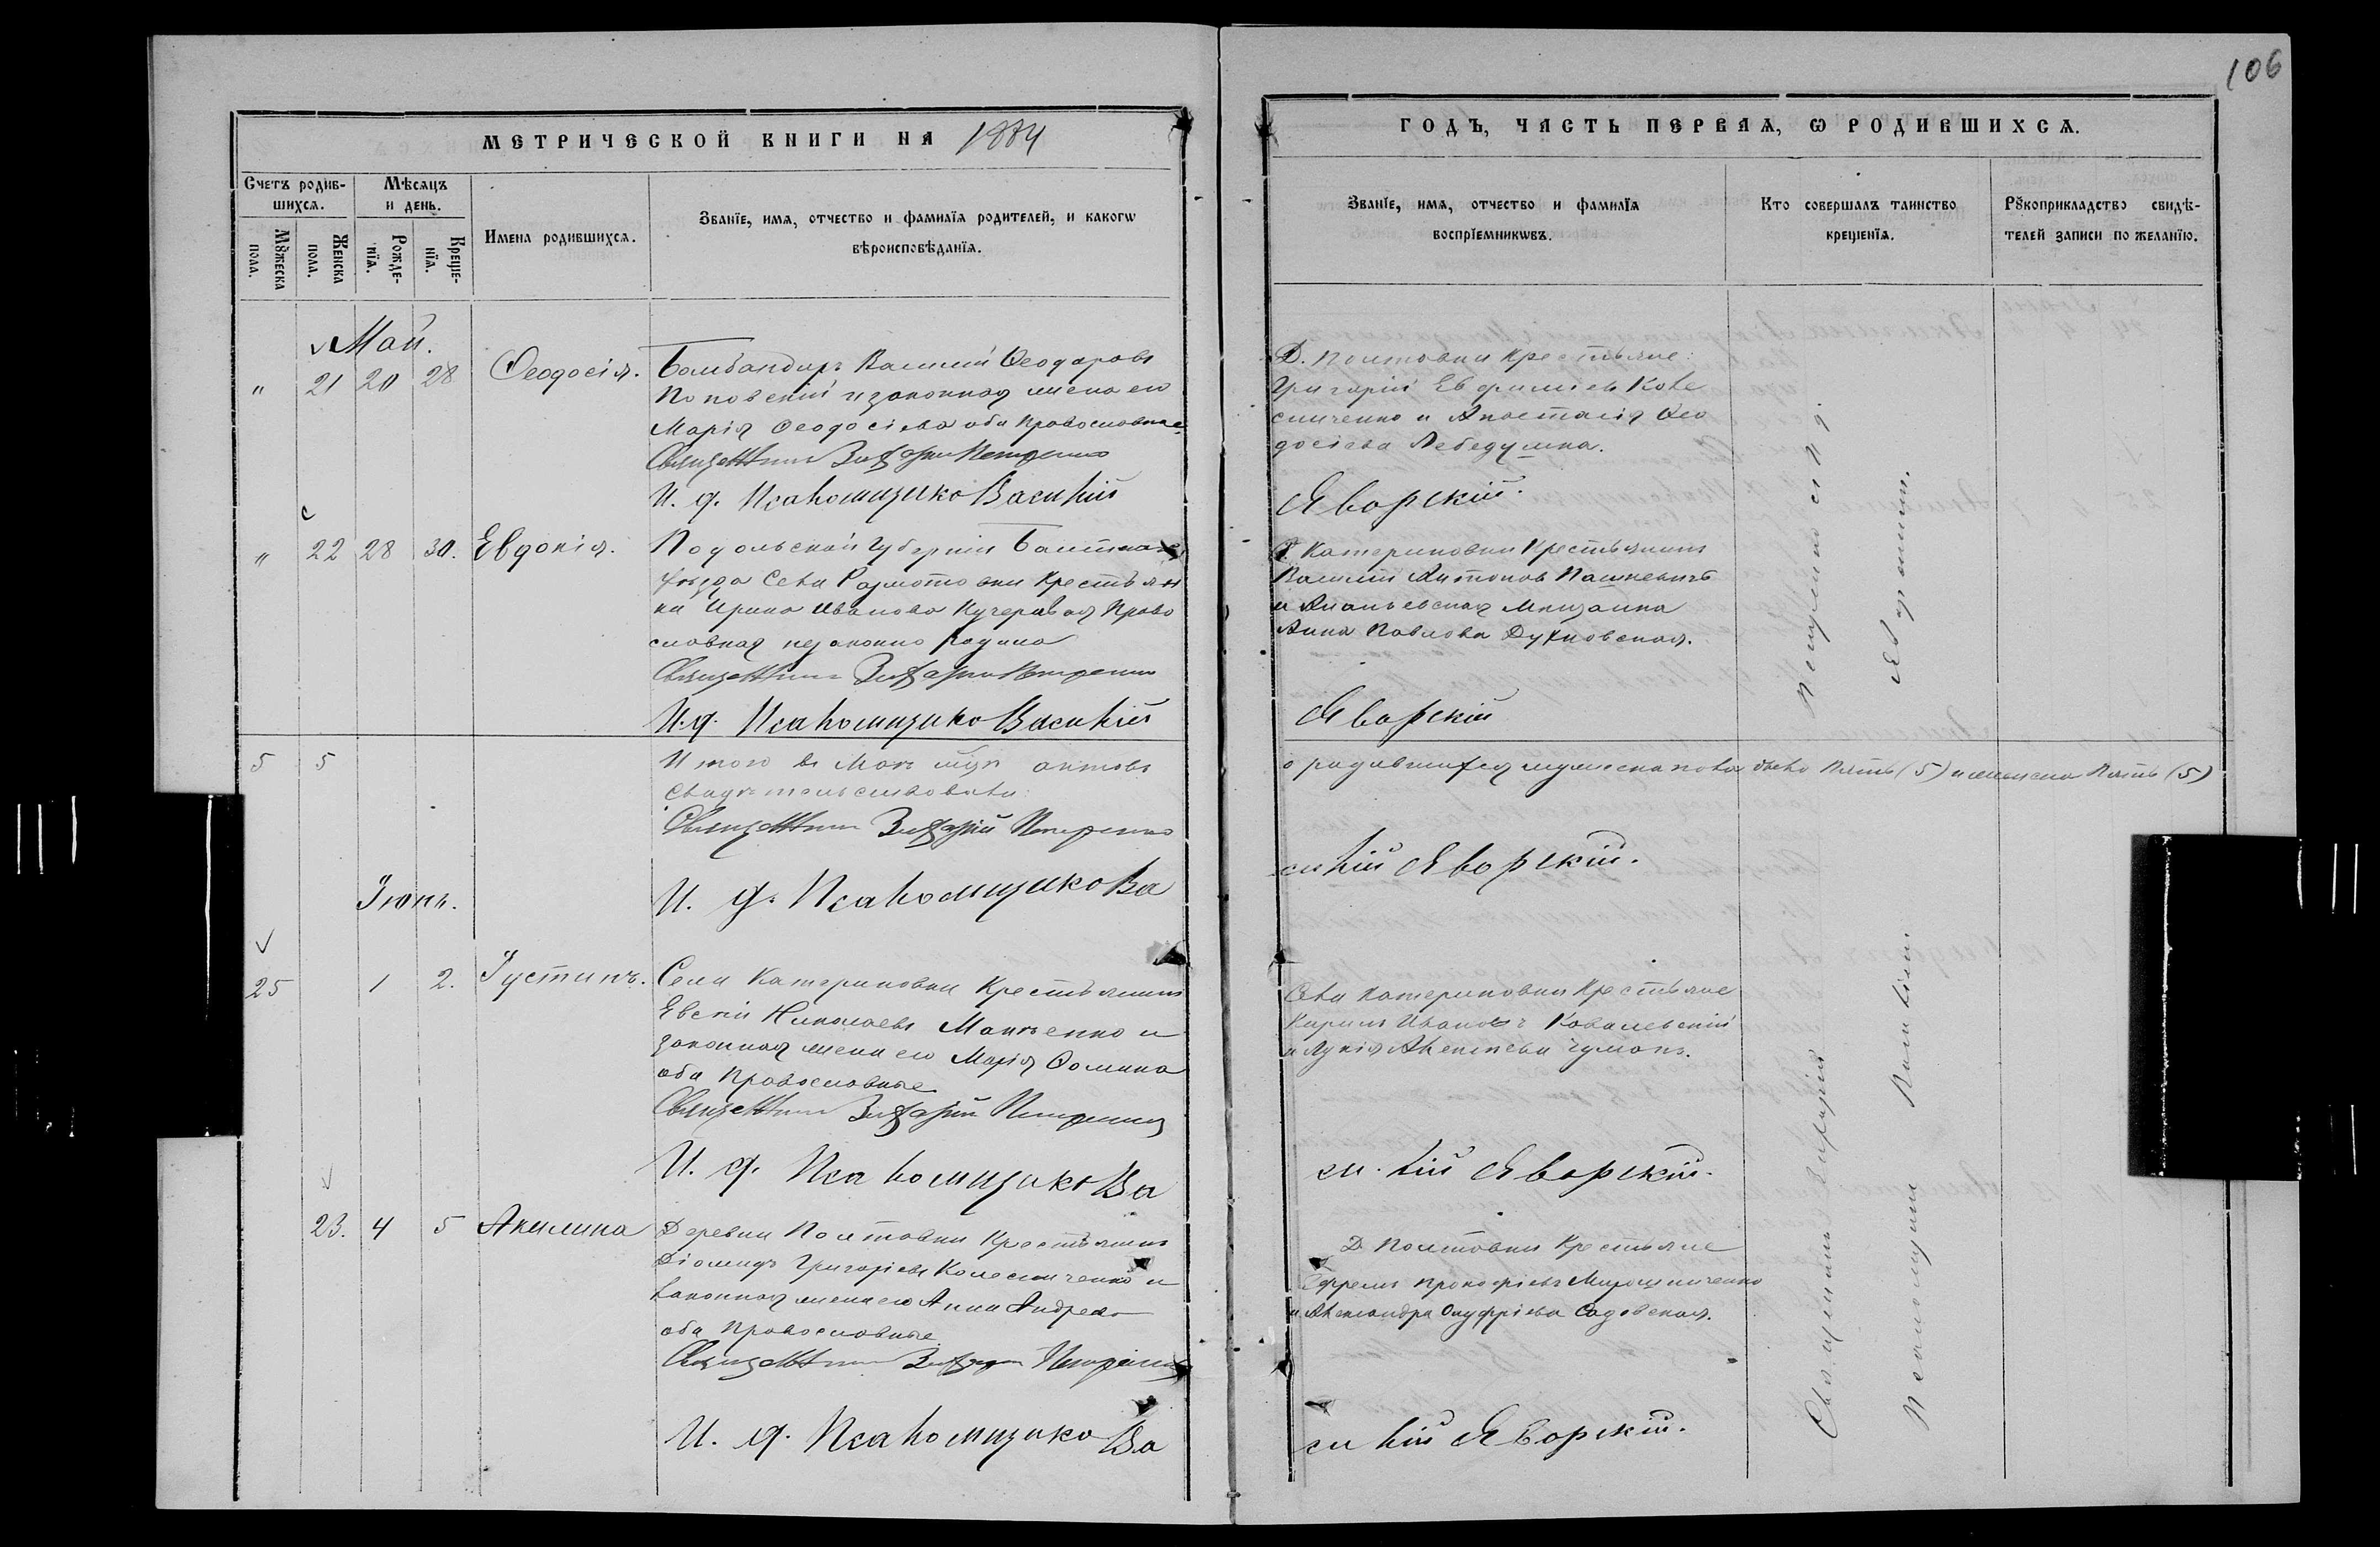 106
МЕТРИЧЕСКОЙ КНИГИ НА 1884
ГОДЪ, ЧАСТЬ ПЕРВАЯ, Ѡ РОДИВШИХСѦ.
Счетъ родив-
шихсѧ.
Мꙋжеска
пола.
Женска
пола.
Мѣсяцъ
и день.
Рожде-
нїѧ.
Креще-
нїѧ.
Имена родившихсѧ.
Званїе, имѧ, отчество и фамилїѧ родителей, и какогѡ
вѣроисповѣданїѧ.
Званїе, имѧ, отчество и фамилїѧ
воспрїемникѡвъ.
Кто совершалъ таинство
крещенїѧ.
Рꙋкоприкладство свидѣ-
телей записи по желанїю.
Май.
" 21 20 28 Ѳеодосія.
Бомбандиръ Василій Ѳеодоровъ
Поповскій и законная жена его
Марія Ѳеодосіева оба православные
Священникъ Захарій Петренко
И. д. Псаломщика Василій
Д. Полтовки Крестьяне:
Григорій Евфиміевъ Коле
сниченко и Анастасія Ѳео
досіева Лебедушка.
Яворскій.
" 22 28 30. Евдокія.
Подольской губерніи Балтскаго
уѣзда Села крестьян
ка Ирина Иванова Кучеравая Право
славная незаконно родила
Священникъ Захарій Петренко
И. д. Псаломщика Василій
Катериновки Крестьянинъ
Василій Антоновъ Пашкевичъ
и Ананьевская Мѣщанка
Анна Павлова Духновская.
Яворскій
5 5
Итого въ Маѣ м-цѣ актовъ
о родившихся мужеска пола было Пять (5) и женска Пять (5)
Свидѣтельствовали:
Священникъ Захарій Петренко
И. д. Псаломщика Ва
силій Яворскій.
Іюнь.
25 1 2. Іустинъ.
Села Катериновки Крестьянинъ
Евстій Николаевъ
законная жена его Марія Ѳомина
оба Православные
Священникъ Захарій Петренко
И. д. Псаломщика Ва
Села Катериновки Крестьяне
Кирилъ Ивановъ Ковалевскій
и Лукія Алексѣева Чумакъ.
силій Яворскій.
23. 4 5 Акилина
Деревни Полтовки Крестьянинъ
Діомидъ Григорьевъ Колесниченко и
законная жена его Анна Андреева
оба Православные
Священникъ Захарій Петренко
И. д. Псаломщика Ва
Д Полтовки Крестьяне
Ефремъ Прокофіевъ Мирошниченко
и Александра Онуфріева Садовская.
силій Яворскій.
Священникъ Захарій
Петренко съ И. д.
Псаломщикомъ Василіемъ
Яворскимъ.